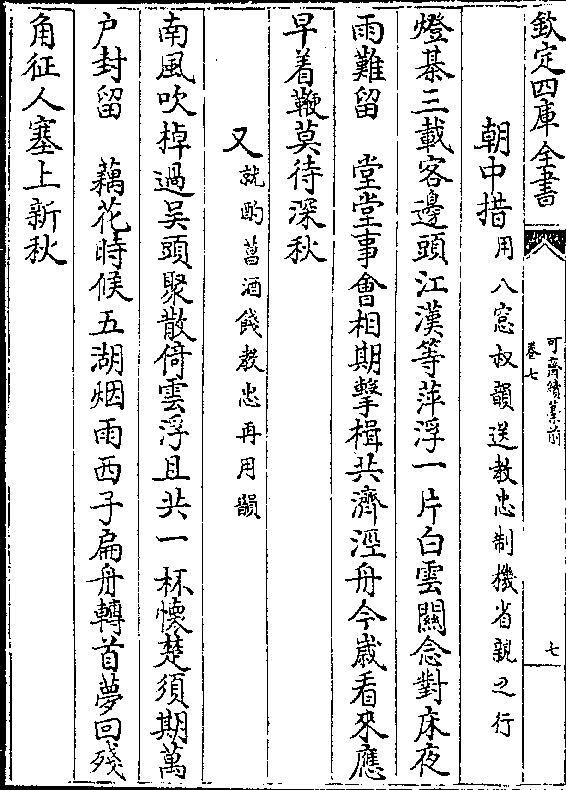 欽定四庫全書
可齋續藁前
卷七
七
朝中措用八窓叔韻送教忠制機省親之行
燈棊三載客邊頭江漢等萍浮一片白雲關念對床夜
雨難留　堂堂事會相期擊楫共濟涇舟今歳看來應
早着鞭莫待深秋
又就酌菖酒餞教忠再用韻
南風吹棹過吳頭聚散倚雲浮且共一杯懷楚須期萬
户封留　藕花時候五湖烟雨西子扁舟轉首夢回殘
角征人塞上新秋